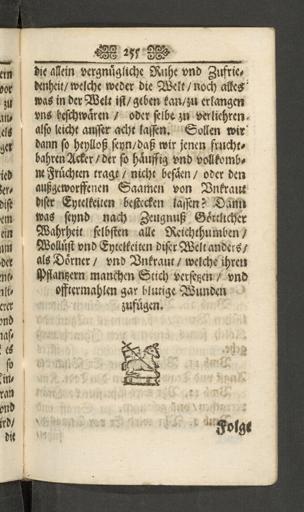 255
die allein vergnügliche Ruhe vnd Zufrie-
denheit/ welche weder die Welt/ noch alles
was in der Welt ist/ geben kan/ zu erlangen
vns beschwären/ oder selbe zu verliehren
also leicht ausser acht lassen. Sollen wir
dann so heylloß seyn/ daß wir jenen frucht-
bahren Acker/ der so häuffig vnd vollkomb-
ne Früchten tragt/ nicht besäen/ oder den
außgeworffenen Saamen von Vnkraut
diser Eytelkeiten bestecken lassen? Dann
was seynd nach Zeugnuß Göttlicher
Wahrheit selbsten alle Reichthumben/
Wollüst vnd Eytelkeiten diser Welt anders/
als Dörner/ vnd Vnkraut/ welche ihren
Pflantzern manchen Stich versetzen/ vnd
offtermahlen gar blutige Wunden
zufügen.
Folge